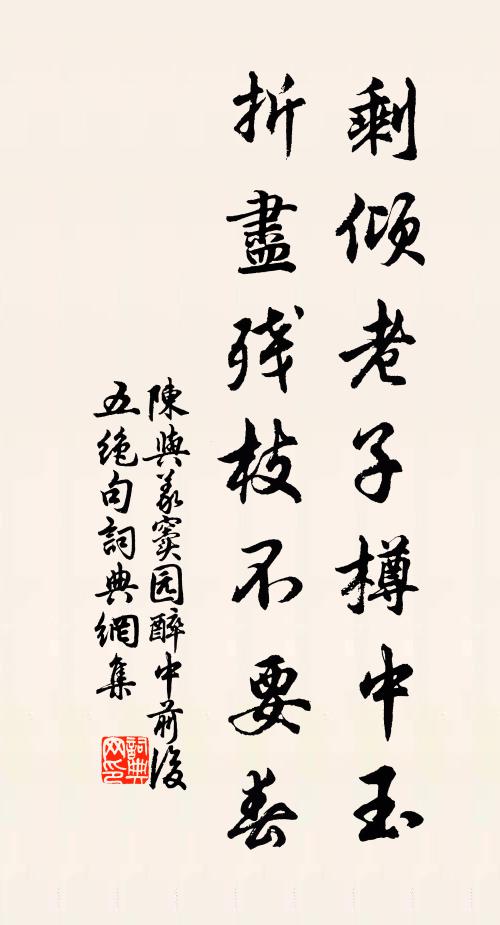 剩倾老子樽中玉
折盡残枝不要春
陳與義窦园醉中前後
五绝句詞典網集
詞典网印